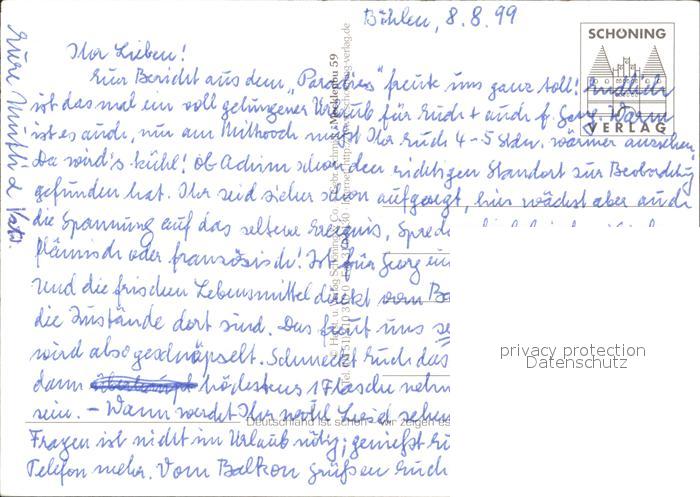 Böhlen, 8.8.99
SCHÖNING
VERLAG
Ihr Lieben!
Euer Bericht aus dem „Paradies" freute uns ganz toll! Endlich
ist das mal ein voll gelungener Urlaub für Euch + auch f. Georg. Warm
ist es auch, nur am Mittwoch müßt Ihr Euch 4-5 Stdn. wärmer anziehen.
Da wird's kühl! Ob Achim schon den richtigen Standort zur Beobachtung
gefunden hat. Ihr seid sicher schon aufgeregt, hier wächst aber auch
die Spannung auf das seltene Ereignis,
flämisch oder französisch! Ist für Georg ein
und die frischen Lebensmittel direkt vom
die Zustände dort sind. Das freut uns
wird also geschnäpselt. Schmeckt Euch das
dann höchstens 1 Flasche
sein. – Wann werdet Ihr wohl
Fragen ist nicht im Urlaub nötig; genießt
Telefon mehr. Vom Balkon grüßen Euch
Eure Mutti & Vati.
privacy protection
Datenschutz
Deutschland ist schön - wir zeigen es